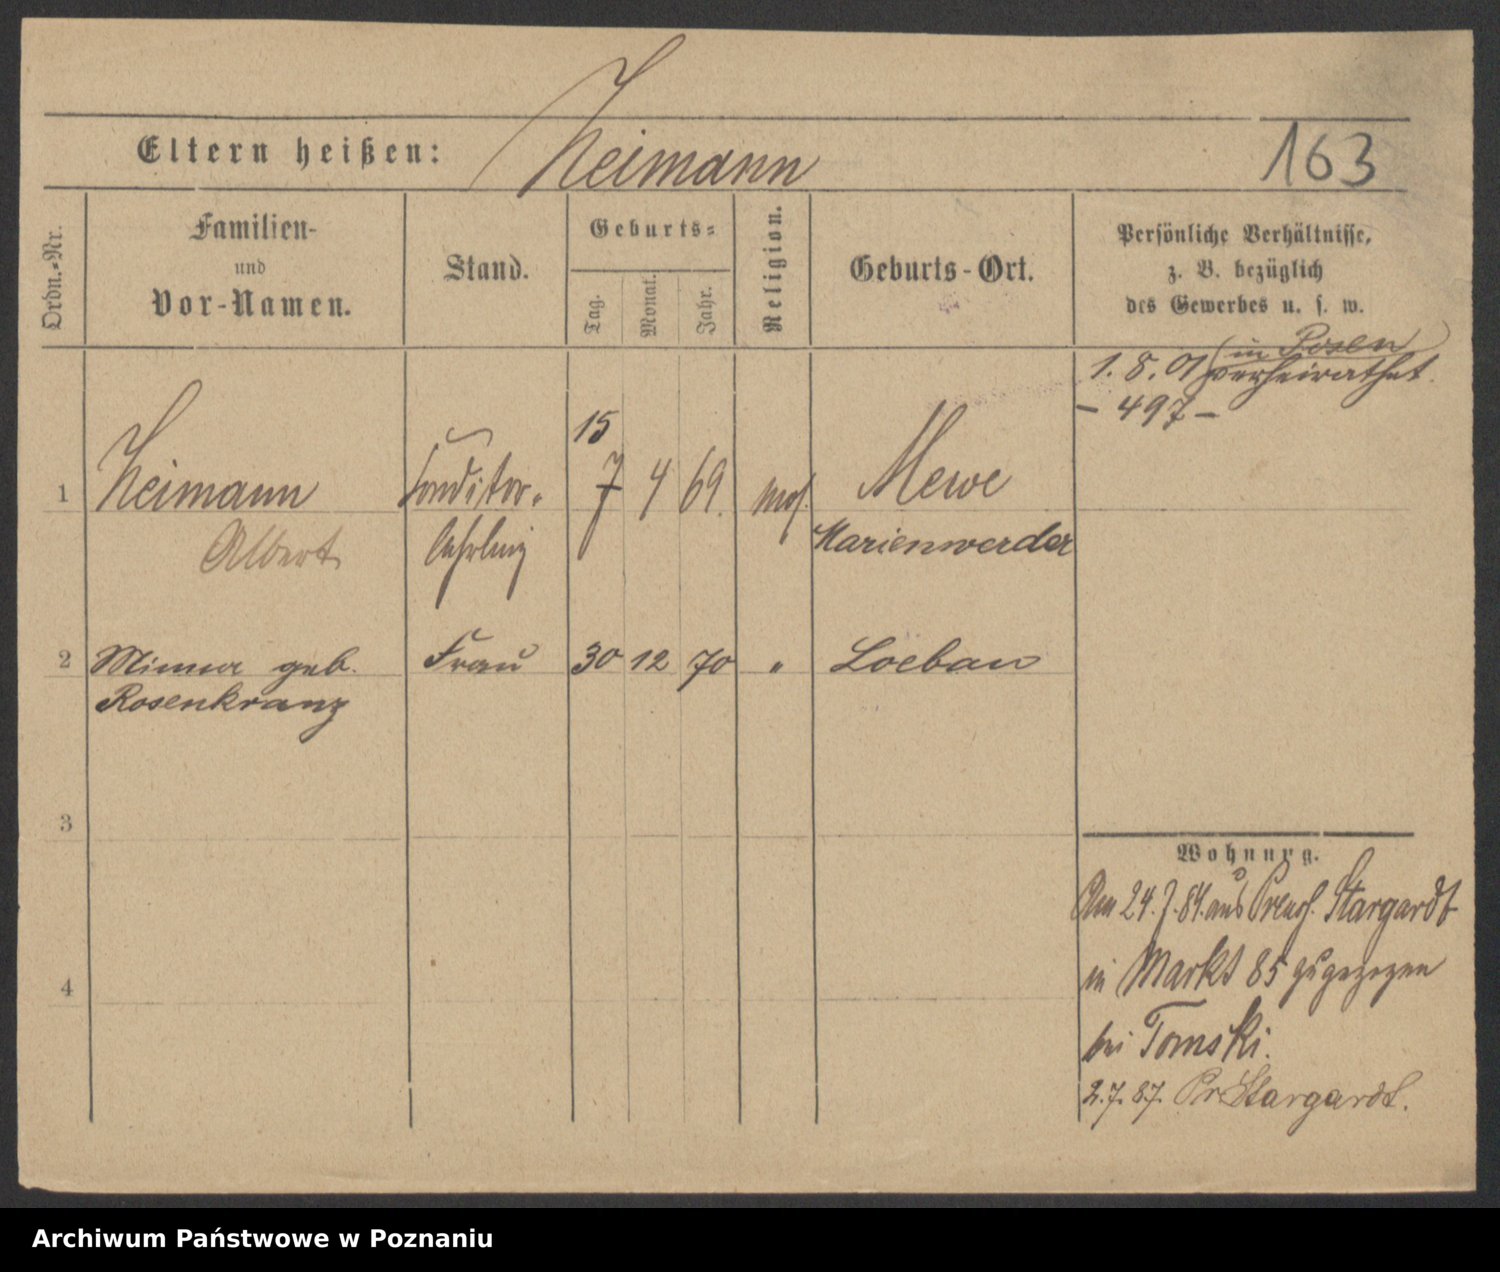 Eltern heißen: Heimann 163
Ordn.-Nr.
Familien-
und
Vor-Namen.
Stand.
Geburts-
Tag.
Monat.
Jahr.
Religion.
Geburts-Ort.
Persönliche Verhältnisse,
z. B. bezüglich
des Gewerbes u. s. w.
in Posen
1. 8. 01 verheirathet.
- 497 -
15
1 Heimann Conditor- 7 4 69. mos. Mewe
Albert lehrling Marienwerder
2 Minna geb. Frau 30 12 70 " Loebau
Rosenkranz
3
4
Wohnung.
Am 24.7.84. aus Preuß. Stargardt
in Markt 85 zugezogen
bei Tomski.
2.7.87. Pr Stargardt.
Archiwum Państwowe w Poznaniu